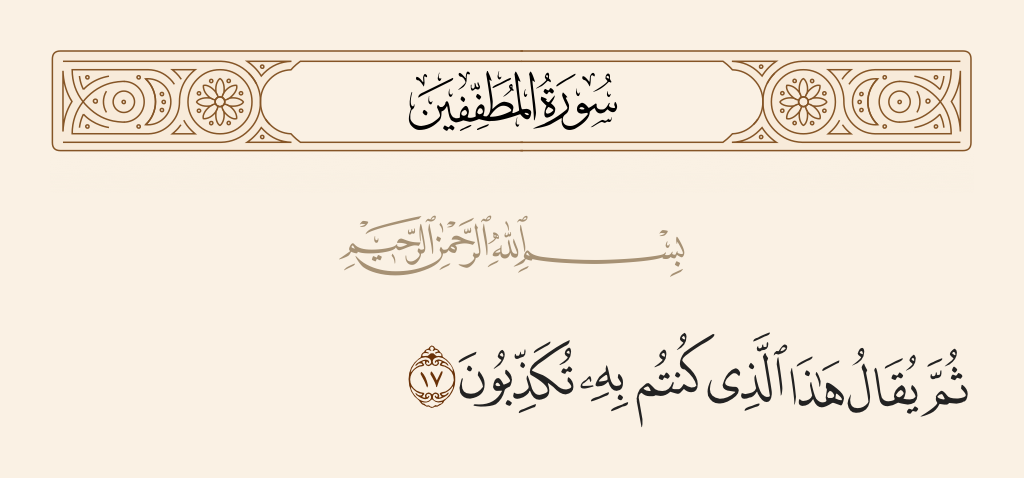 سُورَةُ المُطَفِّفِينَ
بِسْمِ ٱللَّهِ ٱلرَّحْمَٰنِ ٱلرَّحِيمِ
ثُمَّ يُقَالُ هَٰذَا ٱلَّذِى كُنتُم بِهِۦ تُكَذِّبُونَ ١٧